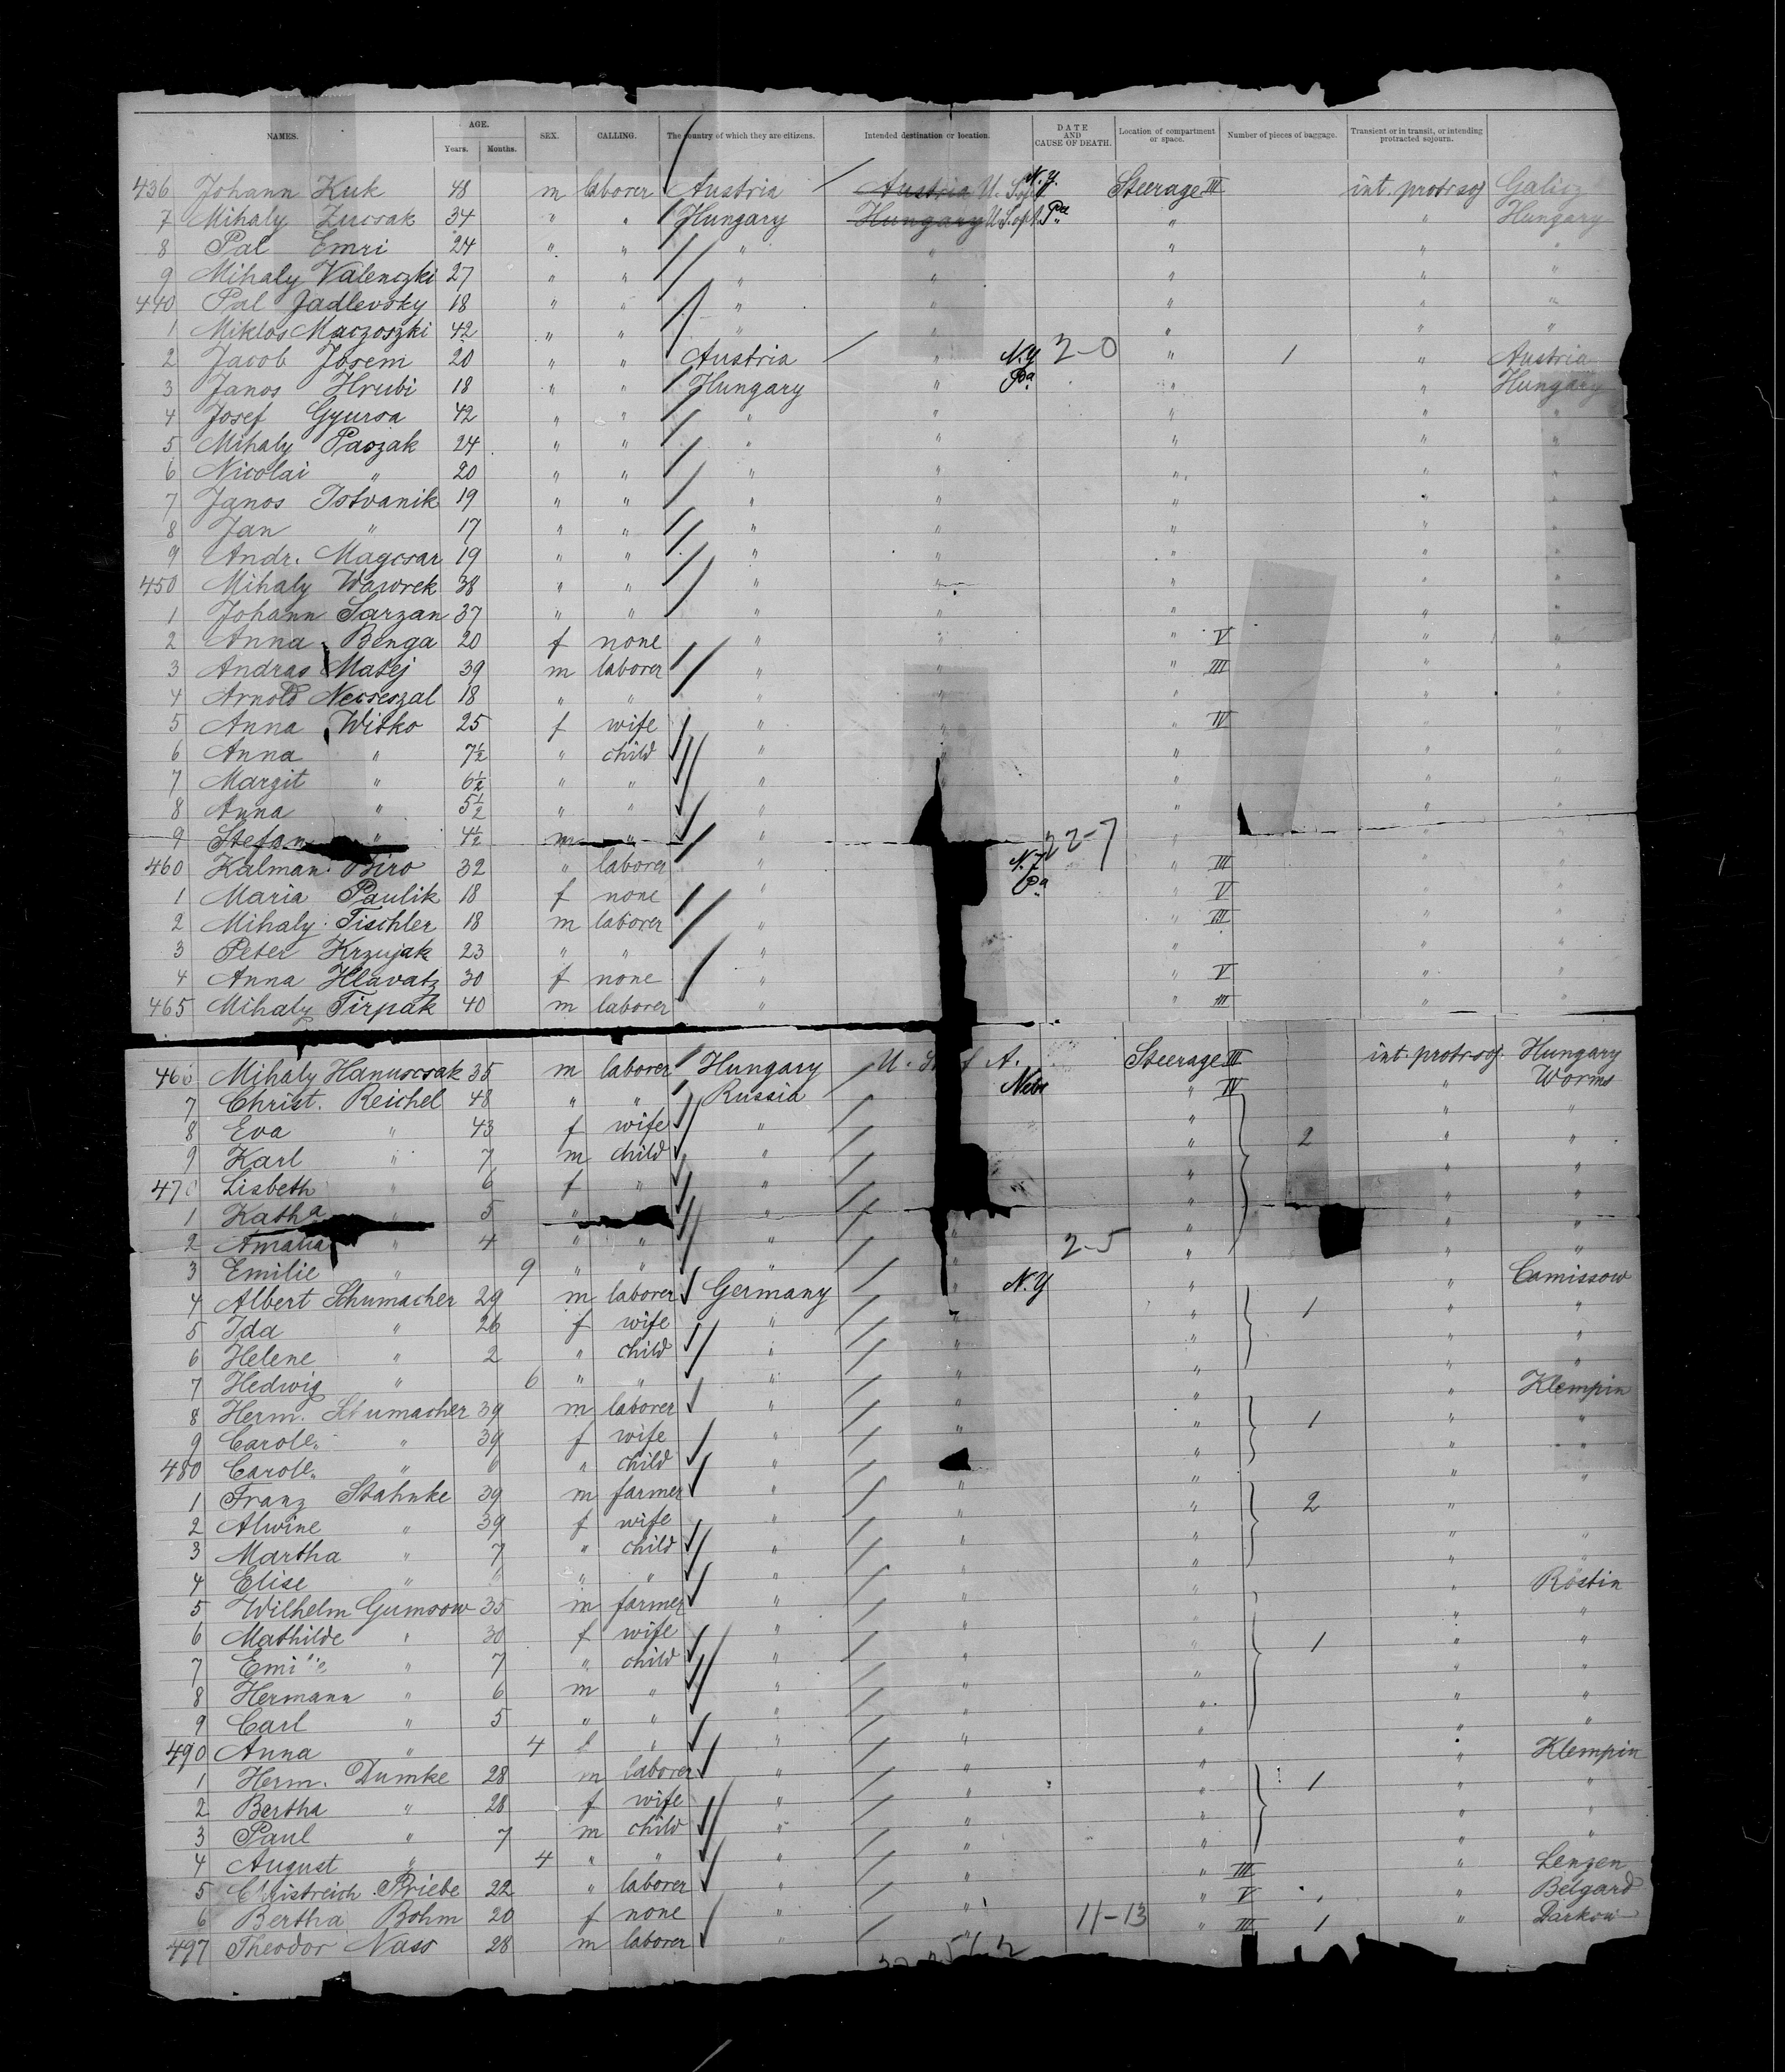 NAMES. AGE. Years. Months. SEX. CALLING. The country of which they are citizens. Intended destination or location. DATE AND CAUSE OF DEATH. Location of compartment or space. Number of pieces of baggage. Transient or in transit, or intending protracted sojourn.
436 Johann Kuk 48 m laborer Austria Austria U. S. of N.Y. Steerage III int. protr soj Galicz
7 Mihaly Zucsak 34 " " Hungary Hungary U.S. of A. Pa " " Hungary
8 Pal Emri 24 " " " " " " "
9 Mihaly Valenczki 27 " " " " " " "
440 Pal Jadlevsky 18 " " " " " " "
1 Miklos Maczoszki 42 " " " " " " "
2 Jacob Josem 20 " " Austria " N.Y 2-0 " 1 " Austria
3 Janos Hrubi 18 " " Hungary " Pa " " Hungary
4 Josef Gyursa 42 " " " " " " "
5 Mihaly Paszak 24 " " " " " " "
6 Nicolai " 20 " " " " " " "
7 Janos Istvanik 19 " " " " " " "
8 Jan " 17 " " " " " " "
9 Andr. Magcsar 19 " " " " " " "
450 Mihaly Wawrek 38 " " " " " " "
1 Johann Sarzan 37 " " " " " " "
2 Anna Benga 20 f none " " " V " "
3 Andras Matej 39 m laborer " " " III " "
4 Arnold Necseszal 18 " " " " " " "
5 Anna Witko 25 f wife " " " IV " "
6 Anna " 7½ " child " " " " "
7 Margit " 6½ " " " " " "
8 Anna " 5½ " " " " " "
9 Stefan " 4½ m " " " " "
460 Kalman Biro 32 " laborer " N.Y 22-7 " III " "
1 Maria Paulik 18 f none " Pa " V " "
2 Mihaly Tischler 18 m laborer " " III " "
3 Peter Krzujak 23 " " " " " "
4 Anna Hlavatz 30 f none " " V " "
465 Mihaly Tirpak 40 m laborer " " III " "
466 Mihaly Hanuscsak 35 m laborer Hungary U. S. of A. Steerage III int. protr soj. Hungary
7 Christ. Reichel 48 " " Russia Nebr " IV " Worms
8 Eva " 43 f wife " " " "
9 Karl " 7 m child " " 2 " "
470 Lisbeth " 6 f " " " " "
1 Katha " 5 " " " " "
2 Amalia " 4 " " " " " " "
3 Emilie " 9 " " " " 2-5 " " "
4 Albert Schumacher 29 m laborer Germany " N.Y " " Camissow
5 Ida " 26 f wife " " " 1 " "
6 Helene " 2 " child " " " " "
7 Hedwig " 6 " " " " " " "
8 Herm. Schumacher 39 m laborer " " " Klempin
9 Carole. " 39 f wife " " " 1 " "
480 Carole. " 6 " child " " " "
1 Franz Stahnke 39 m farmer " " " " "
2 Alwine " 39 f wife " " " 2 "
3 Martha " 7 " child " " " " "
4 Elise " " " " " " " "
5 Wilhelm Gumsow 35 m farmer " " " " Röstin
6 Mathilde " 30 f wife " " " "
7 Emilie " 7 " child " " " 1 " "
8 Hermann " 6 m " " " " " "
9 Carl " 5 " " " " " " "
490 Anna " 4 f " " " " " "
1 Herm. Dumke 28 m laborer " " " " Klempin
2 Bertha " 28 f wife " " " 1 " "
3 Paul " 7 m child " " " " "
4 August " 4 " " " " " " "
5 Christreich Priebe 22 " laborer " " III " Lenzen
6 Bertha Bohm 20 f none " " " V " Belgard
497 Theodor Nass 28 m laborer " " 11-13 " III 1 " Darkow